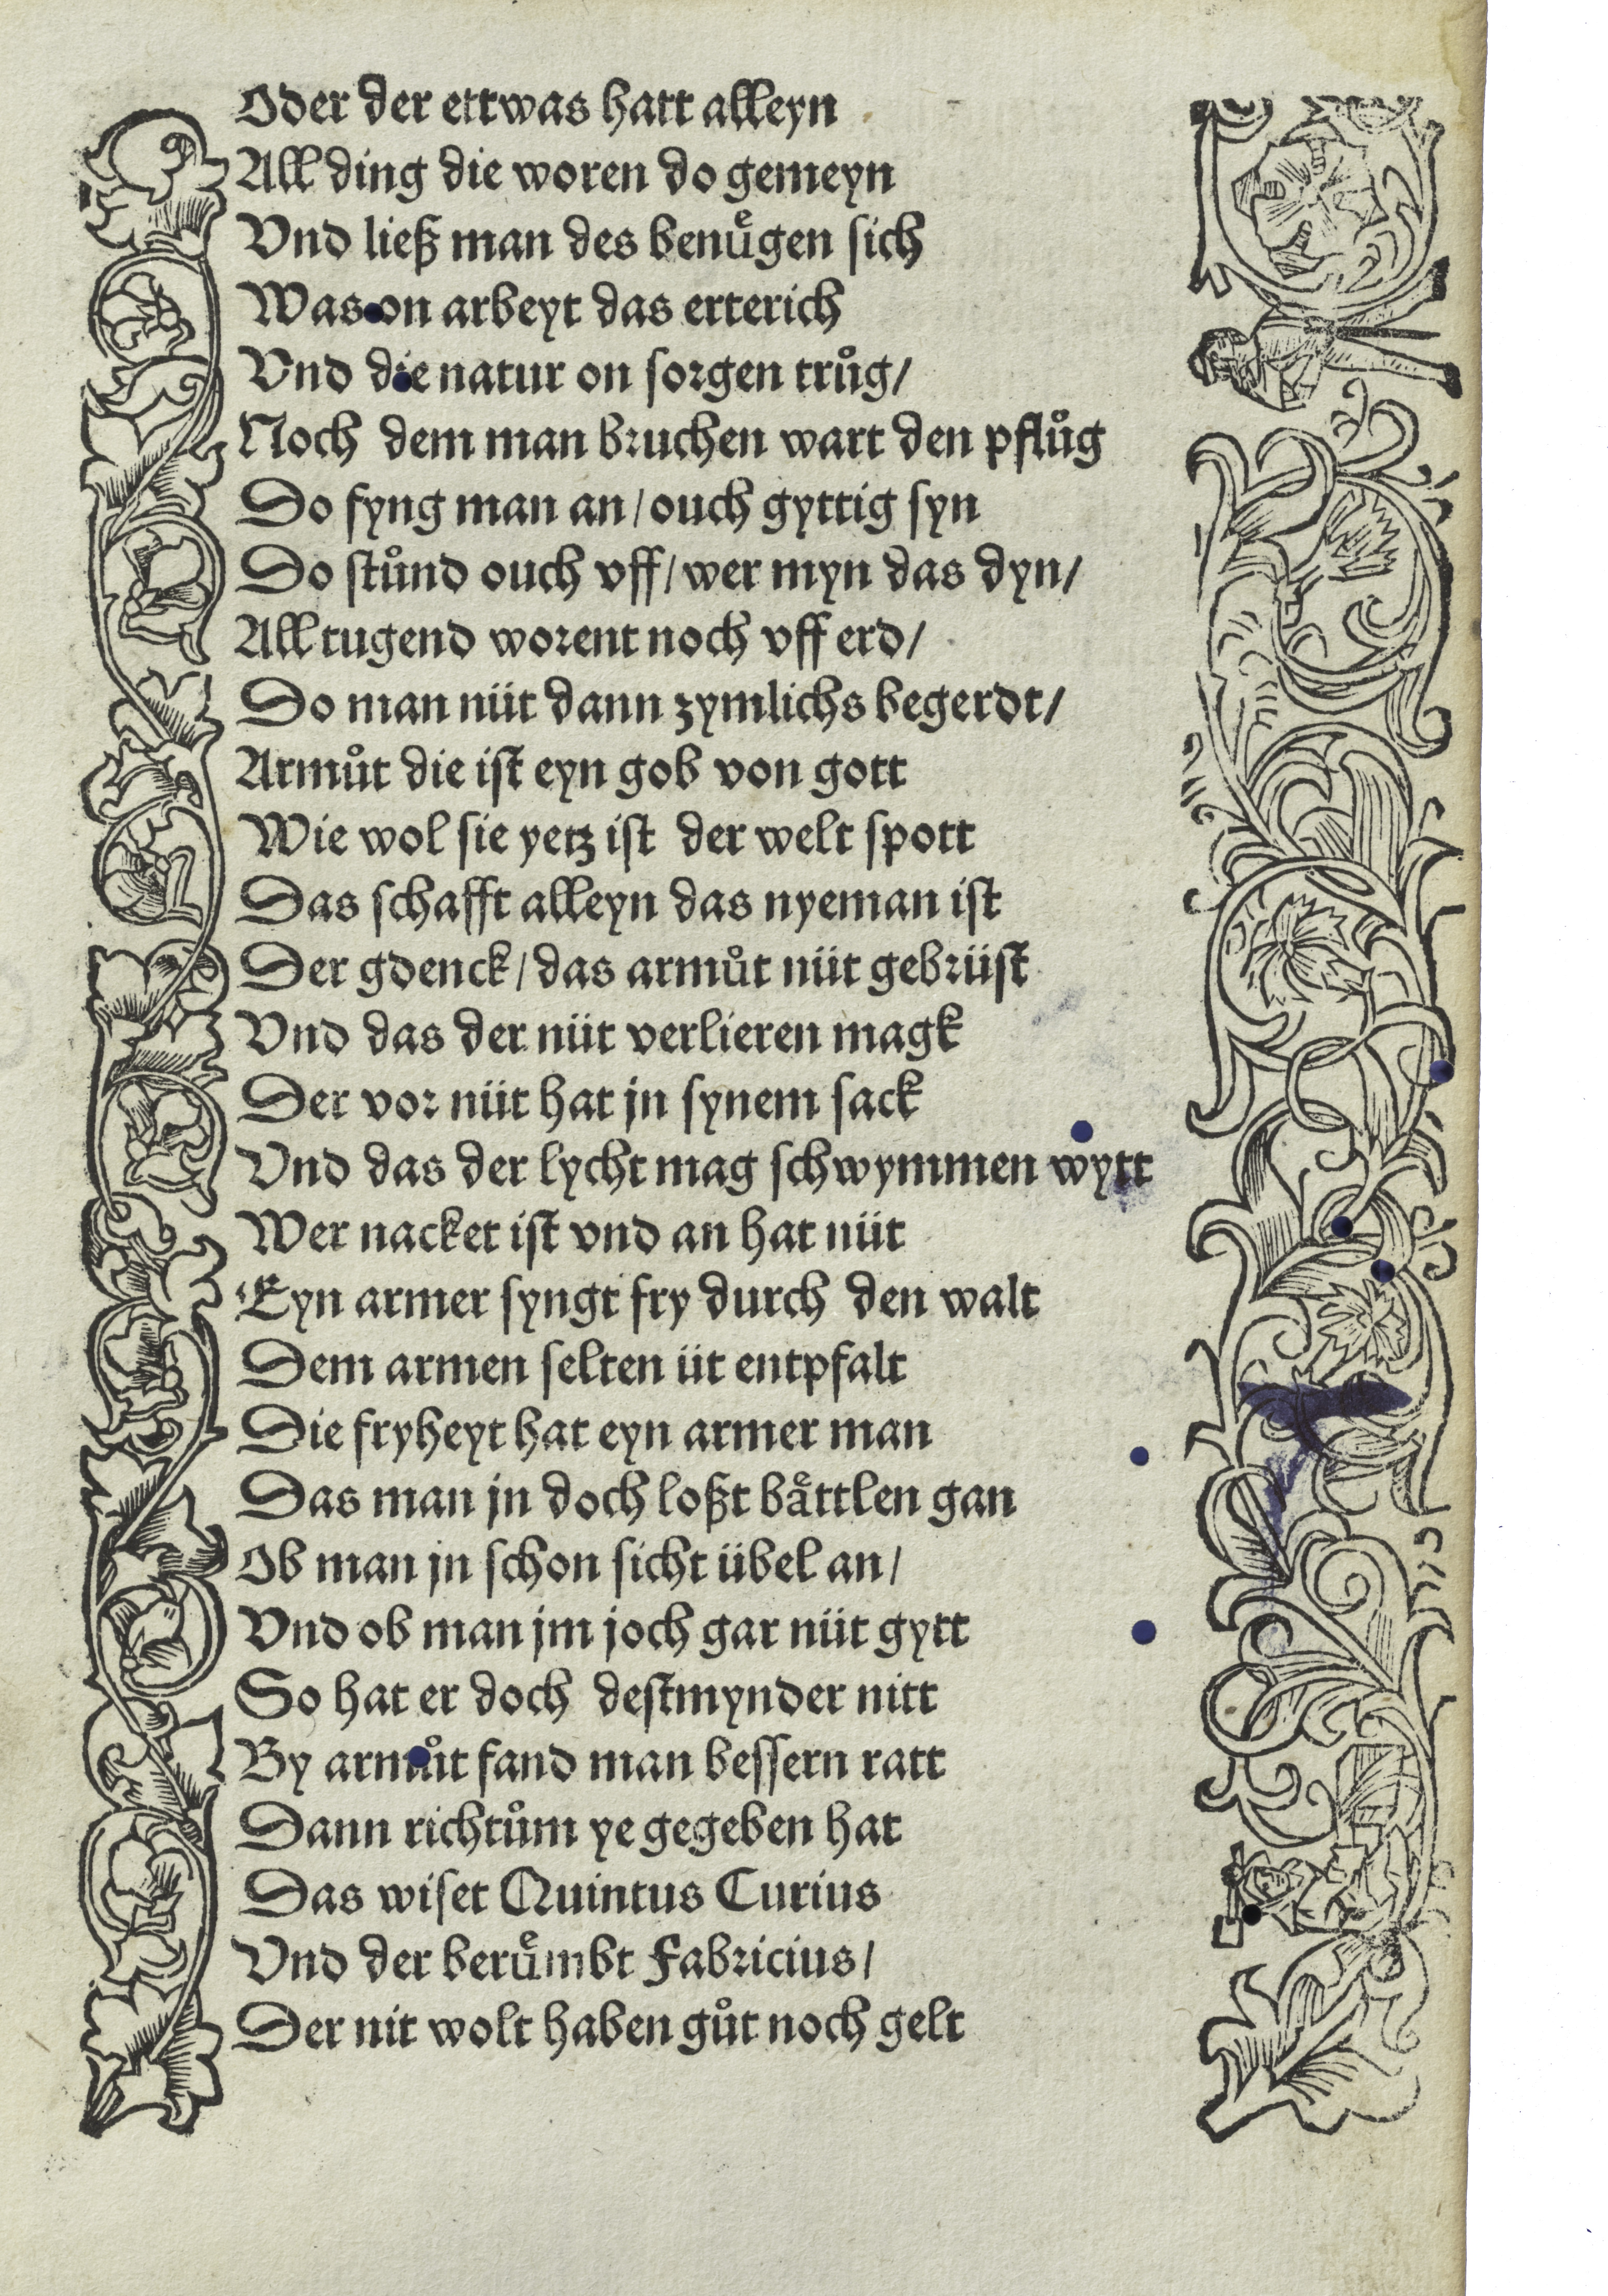 Oder der ettwas hatt alleyn
All ding die woren do gemeyn
Vnd ließ man des benuͤgen sich
Was on arbeyt das erterich
Vnd die natur on sorgen truͦg/
Noch dem man bruchen wart den pfluͦg
Do fyng man an/ ouch gyttig syn
Do stuͦnd ouch vff/ wer myn das dyn/
All tugend worent noch vff erd/
Do man nüt dann zymlichs begerdt/
Armuͦt die ist eyn gob von gott
Wie wol sie yetz ist der welt spott
Das schafft alleyn das nyeman ist
Der gdenck/ das armuͦt nüt gebrüst
Vnd das der nüt verlieren magk
Der vor nüt hat jn synem sack
Vnd das der lycht mag schwymmen wytt
Wer nacket ist vnd an hat nüt
Eyn armer syngt fry durch den walt
Dem armen selten üt entpfalt
Die fryheyt hat eyn armer man
Das man jn doch loßt baͤttlen gan
Ob man jn schon sicht übel an/
Vnd ob man jm joch gar nüt gytt
So hat er doch destmynder nitt
By armuͦt fand man bessern ratt
Dann richtuͦm ye gegeben hat
Das wiset Quintus Curius
Vnd der beruͤmbt Fabricius/
Der nit wolt haben guͦt noch gelt